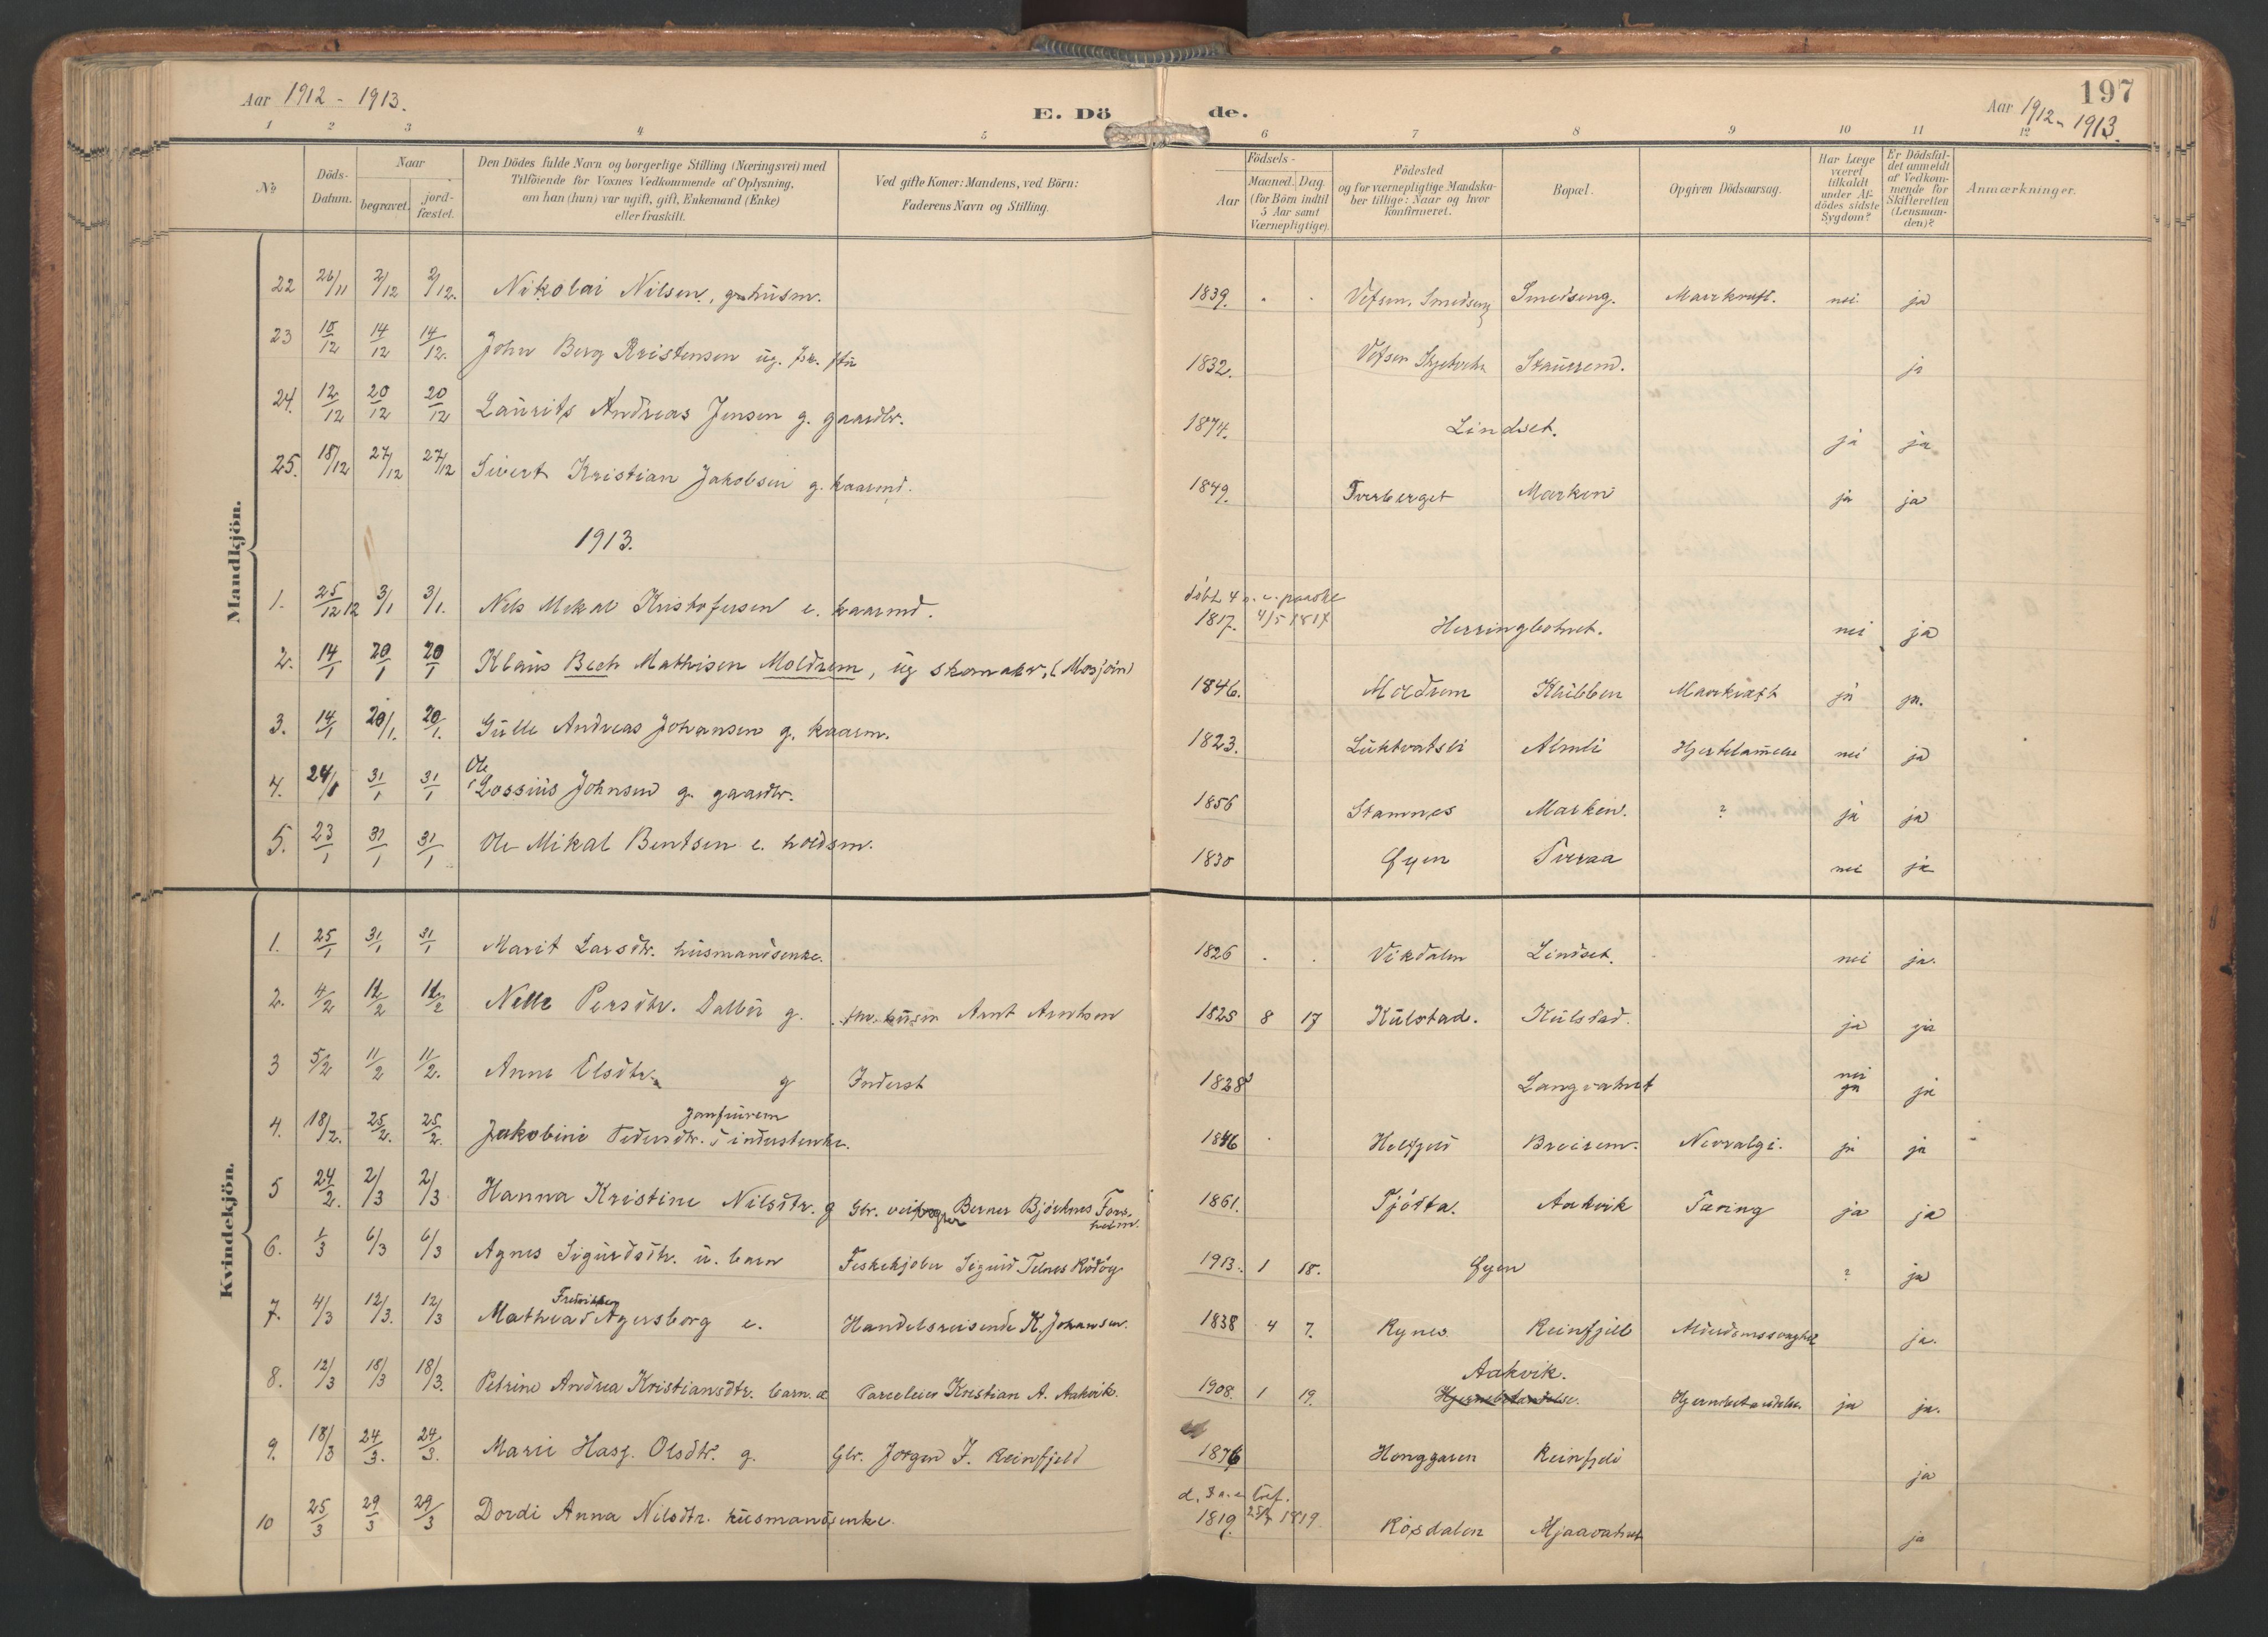 197
Aar 1912 - 1913.
E. Dö de.
Aar 1912 - 1913.
1 2 3 4 5 6 7 8 9 10 11 12
No
Döds-Datum.
Naar
begravet.
jord-fæstet.
Den Dödes fulde Navn og borgerlige Stilling (Næringsvei) med
Tilföiende for Voxnes Vedkommende af Oplysning,
om han (hun) var ugift, gift, Enkemand (Enke)
eller fraskilt.
Ved gifte Koner: Mandens, ved Börn:
Faderens Navn og Stilling.
Födsels-
Aar
Maaned. Dag.
(for Börn indtil
5 Aar samt
Værnepligtige).
Födested
og for værnepligtige Mandska-
ber tillige: Naar og hvor
konfirmeret.
Bopæl.
Opgiven Dödsaarsag.
Har Læge
været
tilkaldt
under Af-
dödes sidste
Sygdom?
Er Dödsfal-
det anmeldt
af Vedkom-
mende for
Skifteretten
(Lensman-
den)?
Anmærkninger.
Mandkjön.
22 26/11 2/12 2/12. Nikolai Nilsen, husm. 1839. Vefsen, Smedseng Smedseng. Mavekræft. nei ja
23 10/12 14/12 14/12. John Berg Kristensen ug. 1832. Vefsen Staurrem. ja
24. 12/12 20/12 20/12 Laurits Andreas Jensen g. gaardbr. 1874. Lindset. ja ja
25. 18/12 27/12 27/12 Sivert Kristian Jakobsen g. kaarmd. 1849. Tverberget Marken ja ja
1913.
1. 25/12 12 3/1 3/1. Nels Mikal Kristofersen e. kaarmd. döbt 4 s. e. paaske 1817. 4/5 1817 Herringbotnet. nei ja
2. 14/1 20/1 20/1 Klaus Bech Mathisen Moldrem, ug skomaker, (Mosjøen) 1846. Moldrem Klubben Mavekræft ja ja.
3. 14/1 20/1. 20/1. Gulle Andreas Johansen g. kaarm. 1823. Luktvatsli Almli Hjertelammelse nei ja
4. 24/1 31/1 31/1 Ole Lossius Johnsen g. gaardbr. 1856 Stamnes Marken. ? ja ja
5. 23/1 31/1 31/1 Ole Mikal Bentsen e. holdsm. 1830 Øyen Tveraa nei ja
Kvindekjön.
1. 25/1 31/1 31/1 Marit Larsdtr. husmandsenke. 1826 Vikdalen Lindset. nei ja.
2. 4/2 11/2 11/2 Nelle Persdtr. Dalbu g. husm Arnt Arntsen 1825 8 17 Kulstad. Kulstad. ja ja
3 5/2 11/2 11/2. Anne Elsdtr. g Inderst 1828 Langvatnet nei ja ja
4. 18/2. 25/2. 25/2. Jakobine Pedersdtr. Jonfurrem inderstenke. 1846 Helfjeld Breirem. Nevralgi. ja ja
5 24/2. 2/3 2/3 Hanna Kristine Nilsdtr. g Gbr. veivogter Berner Björknes Forsheim. 1861. Tjötta. Aakvik Tæring ja ja
6. 1/3 6/3 6/3 Agnes Sigurdsdtr. u. barn Feskekjøber Sigurd Telnes Rödöy 1913. 1 18. Øyen ? ja
7. 4/3 12/3. 12/3 Mathea Fredrikke Agersborg e. Handelsreisende K. Johansen. 1838 4 7. Rynes Reinfjell Alderdomssvaghet ja.
8. 12/3 18/3 18/3. Petrine Andrea Kristiansdtr. barn. Parcelleier Kristian A. Aakvik. 1908 1 19. Aakvik. Hjernebetændelse. Hjernebetændelse. ja ja.
9. 18/3 24/3. 24/3. Marie Hasj. Olsdtr. g. Gbr. Jørgen J. Reinfjeld 1876 Honggaren Reinfjell ja
10 25/3 29/3 29/3 Dordi Anna Nilsdtr. husmandsenke. 1819 1819. Rösdalen Mjaavatnet ja